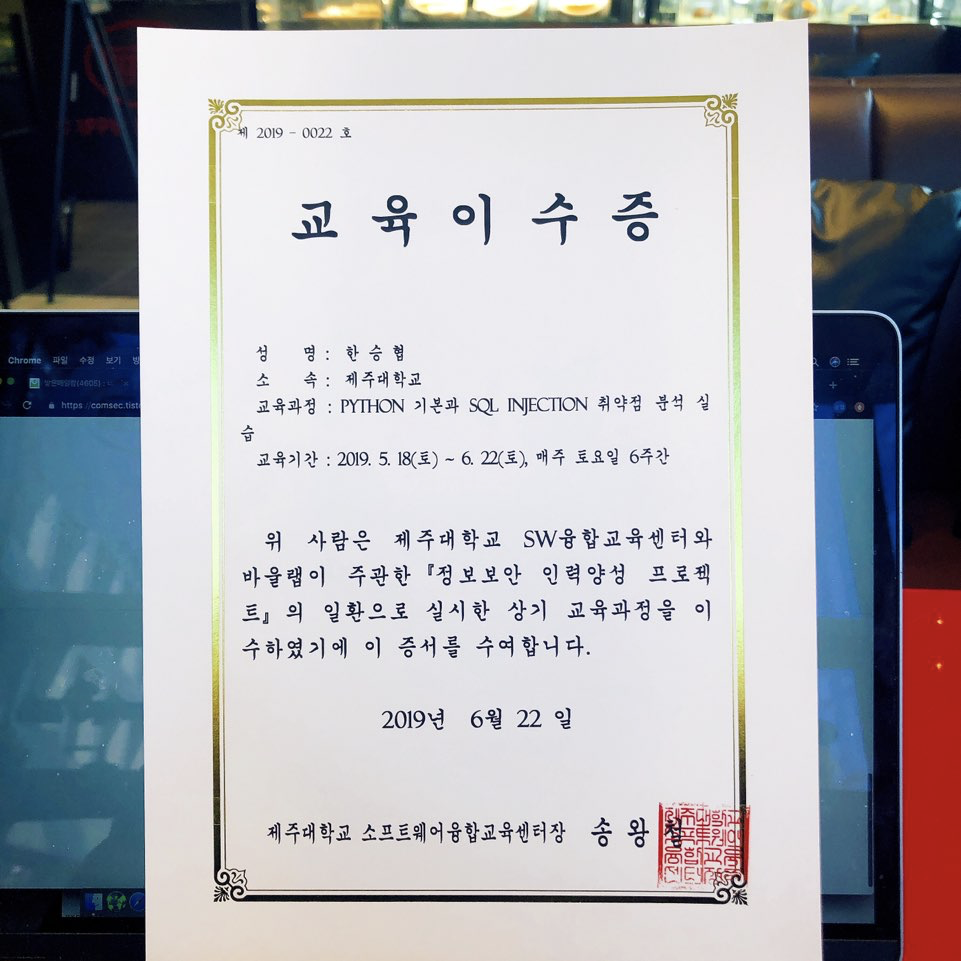 제 2019 - 0022 호
교 육 이 수 증
성 명 : 한 승 협
소 속 : 제주대학교
교육과정 : PYTHON 기본과 SQL INJECTION 취약점 분석 실
습
교육기간 : 2019. 5. 18(토) ~ 6. 22(토), 매주 토요일 6주간
위 사람은 제주대학교 SW융합교육센터와
바울랩이 주관한『정보보안 인력양성 프로젝
트』의 일환으로 실시한 상기 교육과정을 이
수하였기에 이 증서를 수여합니다.
2019년 6월 22 일
제주대학교 소프트웨어융합교육센터장 송 왕 철
Chrome 파일 수정 보기
https://comsec.tist